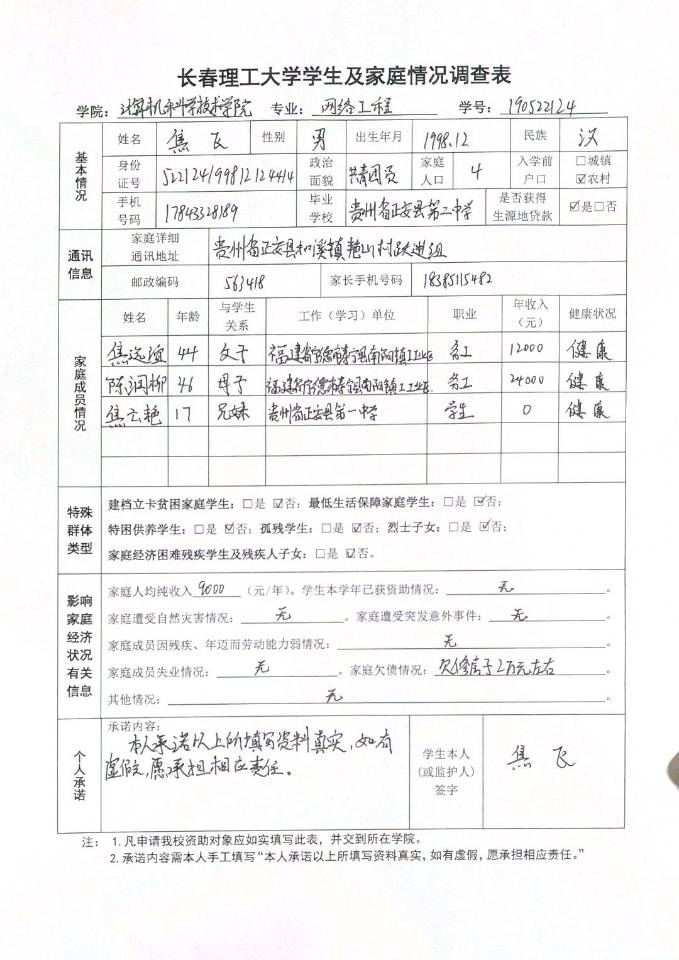 长春理工大学学生及家庭情况调查表
学院：计算机科学技术学院 专业：网络工程 学号：190522124
基本情况
姓名 焦飞 性别 男 出生年月 1998.12 民族 汉
身份证号 522124199812124414 政治面貌 共青团员 家庭人口 4 入学前户口 □城镇 ☑农村
手机号码 17843328189 毕业学校 贵州省正安县第二中学 是否获得生源地贷款 ☑是□否
通讯信息
家庭详细通讯地址 贵州省正安县和溪镇艳山村跃进组
邮政编码 563418 家长手机号码 18385115482
家庭成员情况
姓名 年龄 与学生关系 工作（学习）单位 职业 年收入（元） 健康状况
焦 44 父子 福建省宁德市寿宁县南阳镇工业区 务工 12000 健康
陈润柳 46 母子 福建省宁德市寿宁县南阳镇工业区 务工 24000 健康
焦云艳 17 兄妹 贵州省正安县第一中学 学生 0 健康
特殊群体类型
建档立卡贫困家庭学生：□是 ☑否；最低生活保障家庭学生：□是 ☑否；
特困供养学生：□是 ☑否；孤残学生：□是 ☑否；烈士子女：□是 ☑否；
家庭经济困难残疾学生及残疾人子女：□是 ☑否。
影响家庭经济状况有关信息
家庭人均纯收入 9000 （元/年）。学生本学年已获资助情况： 无 。
家庭遭受自然灾害情况： 无 。家庭遭受突发意外事件： 无 。
家庭成员因残疾、年迈而劳动能力弱情况： 无 。
家庭成员失业情况： 无 。家庭欠债情况：欠修房子2万元左右 。
其他情况： 无 。
个人承诺
承诺内容：
本人承诺以上所填写资料真实，如有
虚假，愿承担相应责任。
学生本人（或监护人）签字 焦飞
注： 1.凡申请我校资助对象应如实填写此表，并交到所在学院。
2.承诺内容需本人手工填写“本人承诺以上所填写资料真实，如有虚假，愿承担相应责任。”